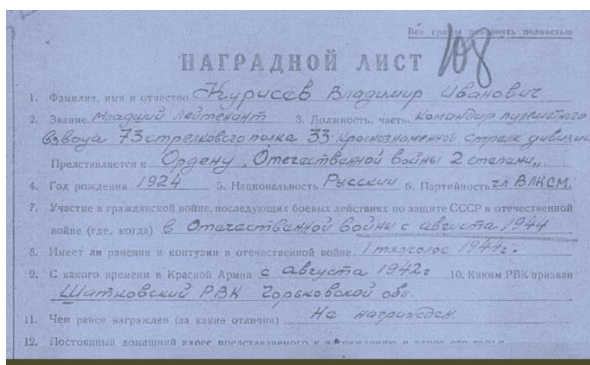 Все графы заполнять полностью
108
НАГРАДНОЙ ЛИСТ
1. Фамилия, имя и отчество Курисев Владимир Иванович
2. Звание Младший Лейтенант 3. Должность, часть Командир пулеметного
взвода 73 стрелкового полка 33 краснознаменной стрелк дивизии
Представляется к Ордену „Отечественной войны 2 степени„
4. Год рождения 1924 5. Национальность Русский 6. Партийность чл ВЛКСМ.
7. Участие в гражданской войне, последующих боевых действиях по защите СССР и отечественной
войне (где, когда) в Отечественной войны с августа 1944
8. Имеет ли ранения и контузии в отечественной войне 1944г.
9. С какого времени в Красной Армии с августа 1942г 10. Каким РВК призван
Шатковский РВК Горьковской обл.
11. Чем ранее награжден (за какие отличия) Не награжден.
12. Постоянный домашний адрес представляемого к награждению и адрес его семьи